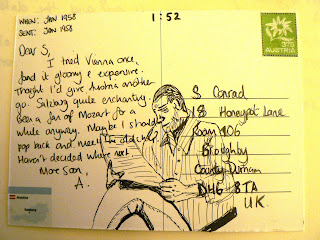 WHEN: JAN 1958
SENT: JAN 1958
1:52
AUSTRIA
Dear S,
I tried Vienna once,
found it gloomy & expensive.
Thought I'd give Austria another
go. Salzburg quite enchanting.
Been a fan of Mozart for a
while anyway. Maybe I should
pop back and meet the old chap?
Haven't decided where next
More soon,
A.
S Conrad
Honeypot Lane
Room 106
Broughby
County Durham
DH6 8TA
U.K.